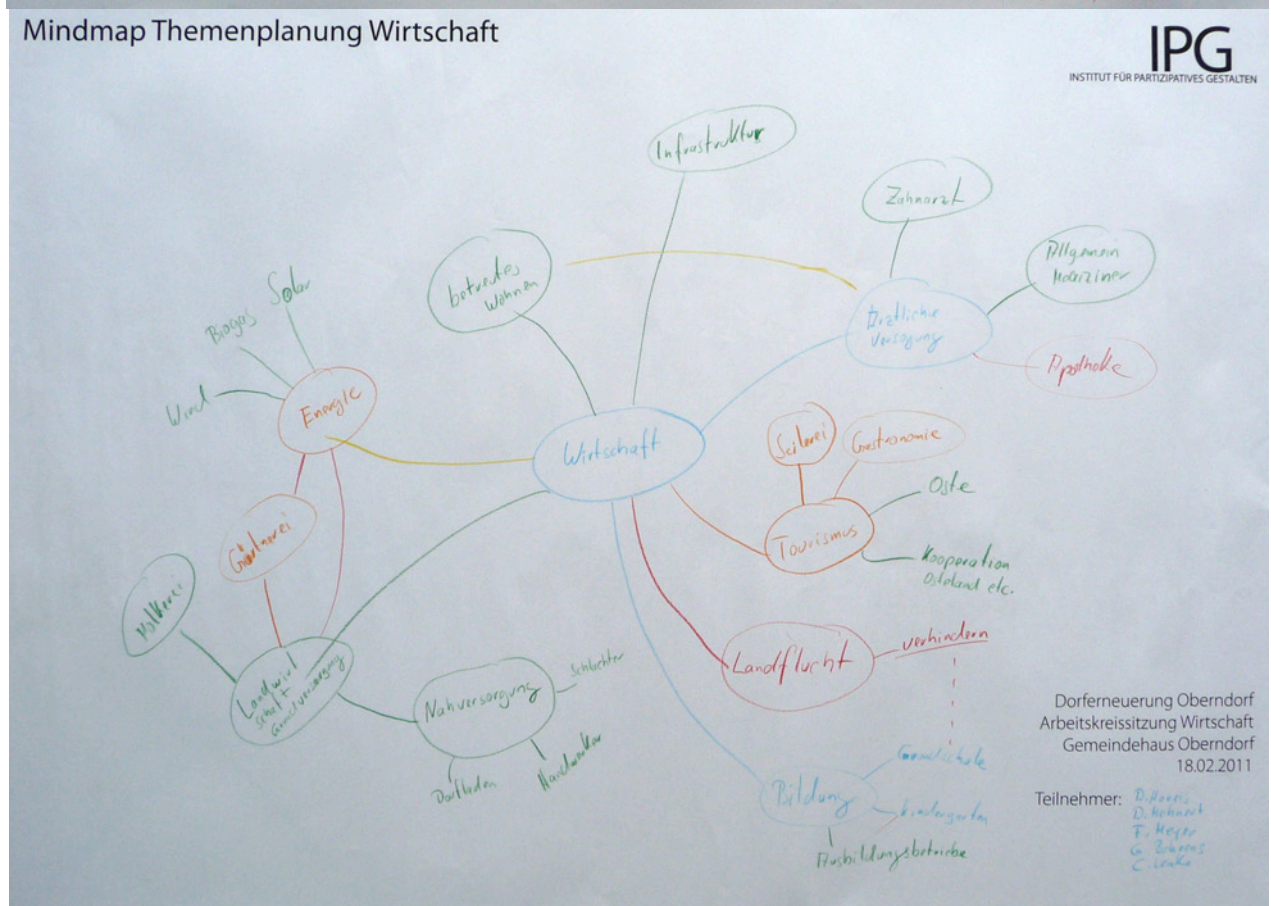 Mindmap Themenplanung Wirtschaft
IPG
INSTITUT FÜR PARTIZIPATIVES GESTALTEN
Infrastruktur
Zahnarzt
Allgemein
Mediziner
betreutes
Wohnen
Ärztliche
Versorgung
Apotheke
Solar
Biogas
Wind
Energie
Wirtschaft
Seilerei
Gastronomie
Oste
Tourismus
Kooperation
Osteland etc.
Gärtnerei
Molkerei
Landwirt
schaft
Grundversorgung
Nahversorgung
Schlachter
Dorfladen
Handwerker
Landflucht
verhindern
Bildung
Grundschule
Kindergarten
Ausbildungsbetriebe
Dorferneuerung Oberndorf
Arbeitskreissitzung Wirtschaft
Gemeindehaus Oberndorf
18.02.2011
Teilnehmer:
D.
D.
F. Meyer
G.
C.